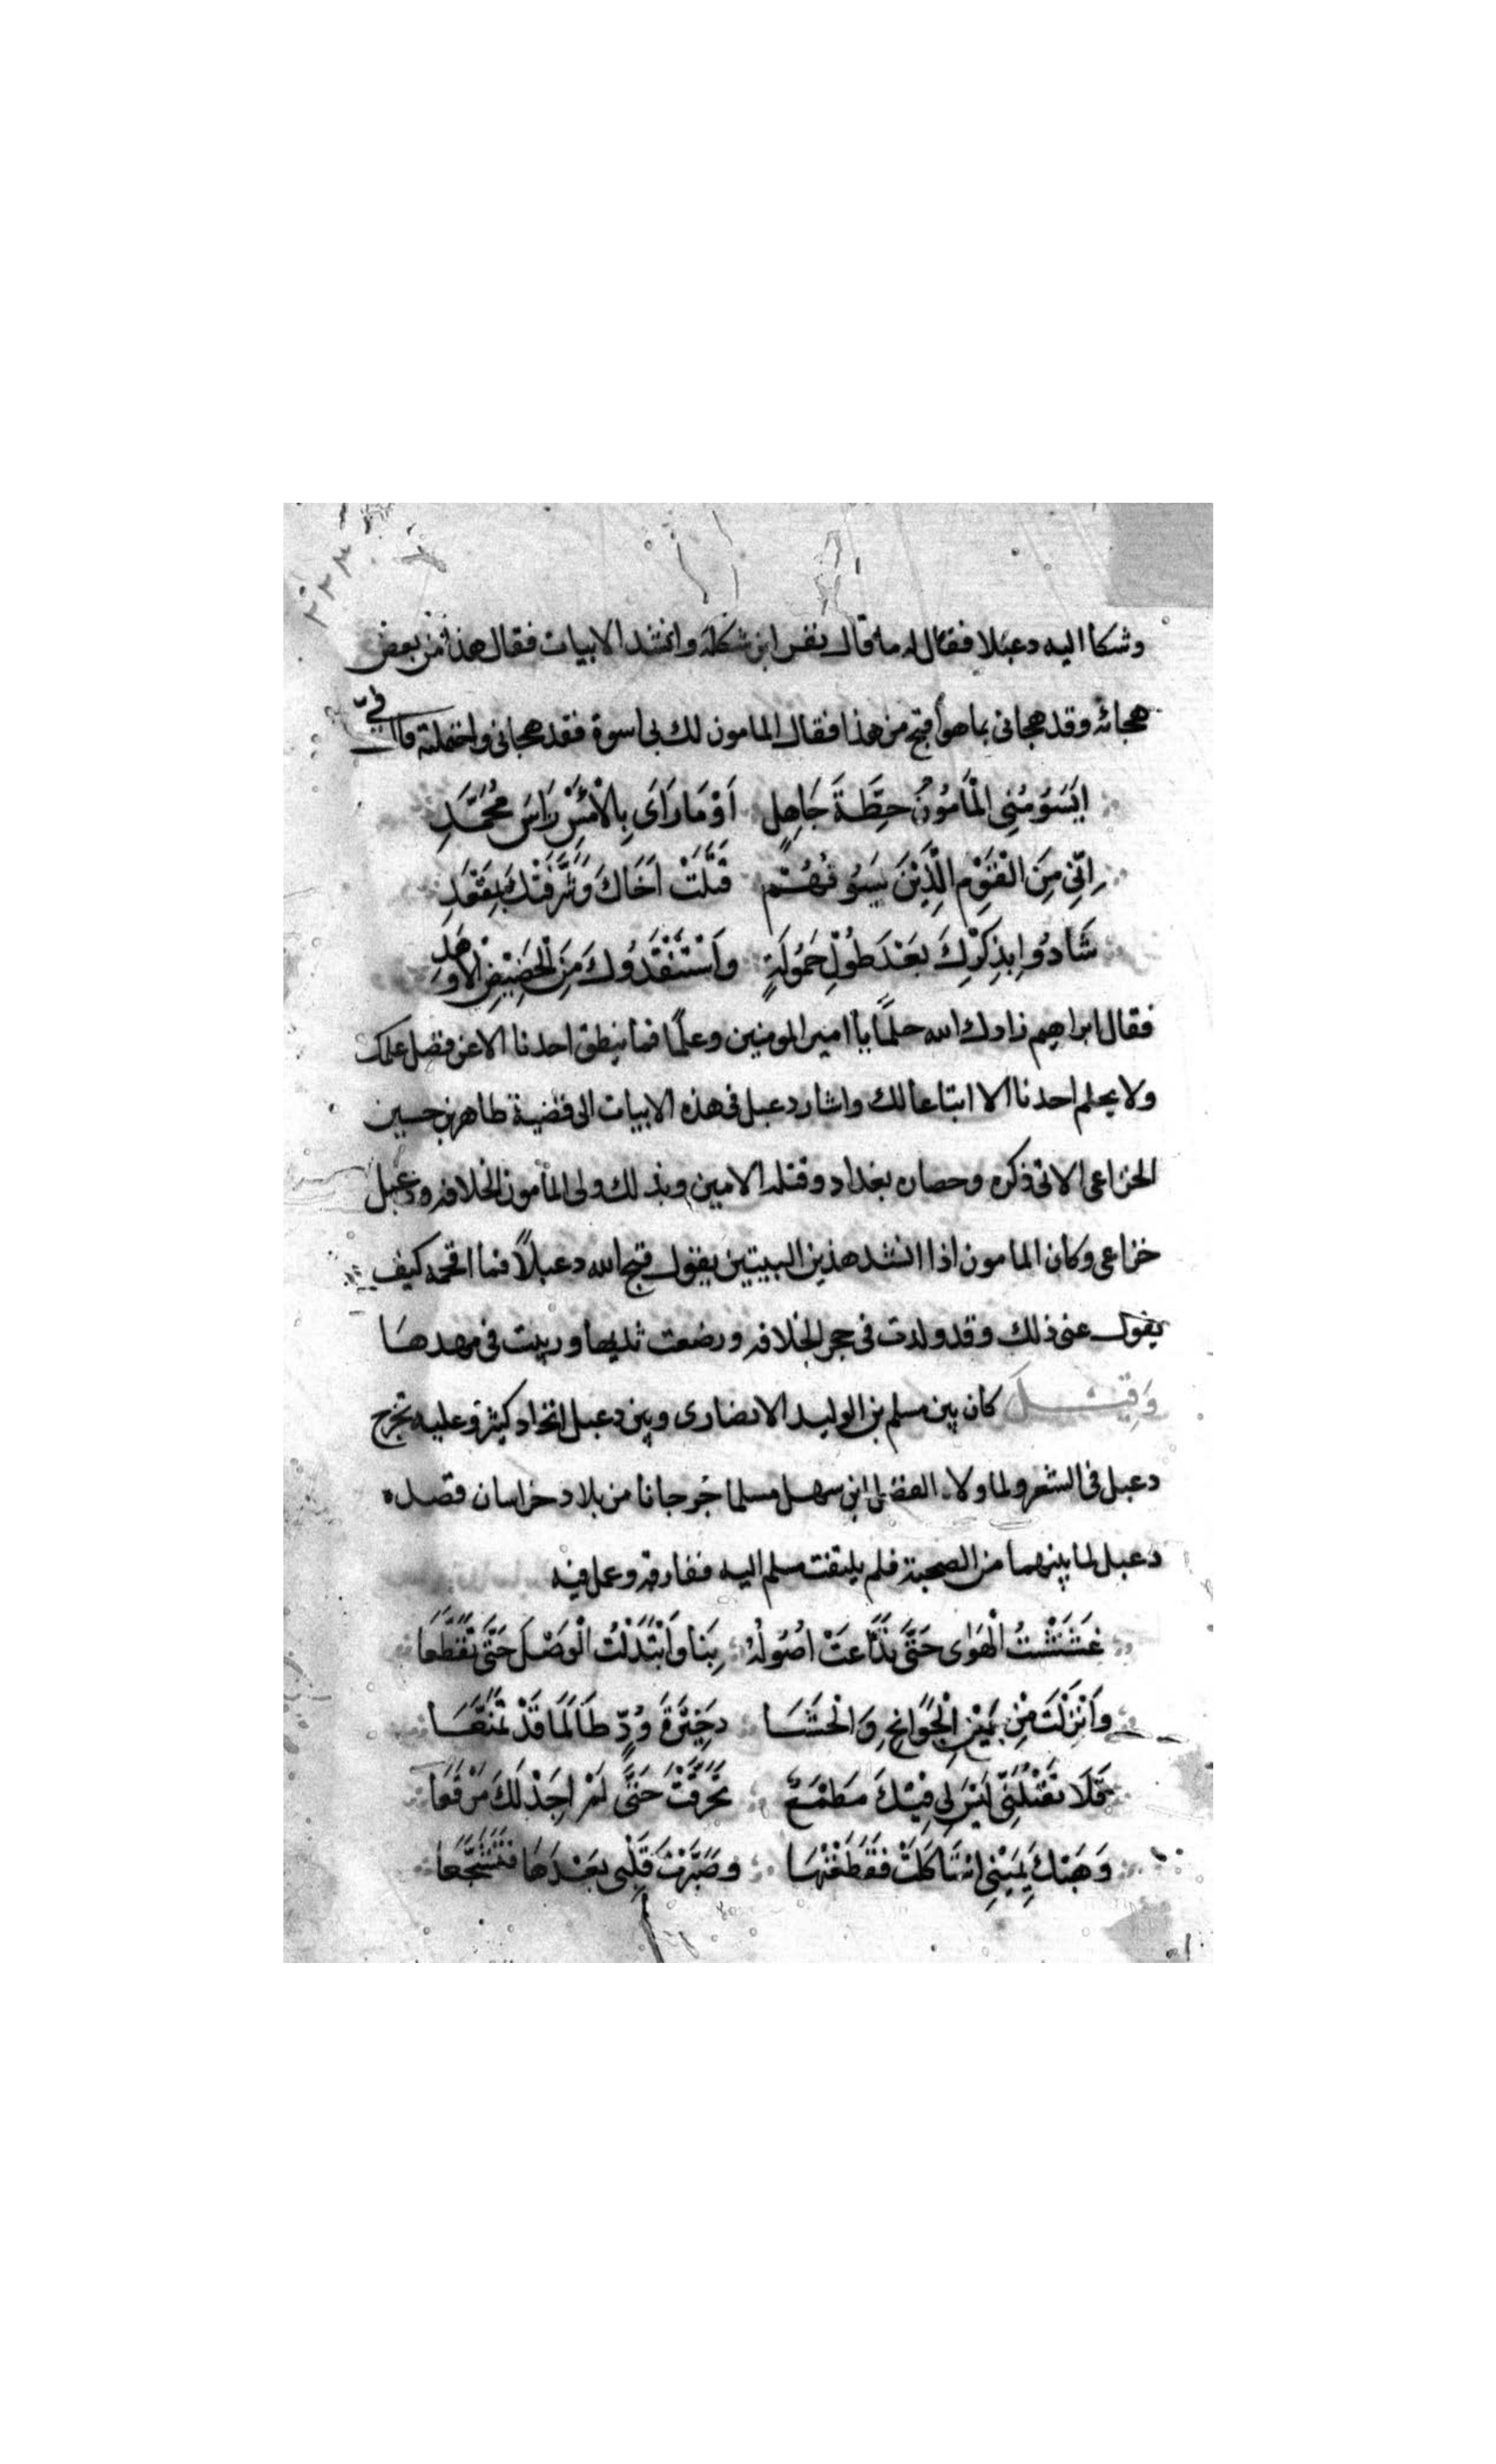 ٢٢٣
وشكا اليه دعبلا فقال له ما قال نفس ابن شكلة وانشد الابيات فقال هذا من بعض
هجائه وقد هجانى بما هو أقبح من هذا فقال المامون لك بى اسوة فقد هجانى واحتملته قال فيّ
ايَسُومُنِى الْمَامُونُ خطَّةَ جَاهِلٍ اَوْ مَا رَاَى بِالْاَمْسِ رَاسَ مُحَمَّدِ
اِنّى مِنَ الْقَوْمِ الَّذِيْنَ سيُوفُهُمْ قتَلَتْ اَخَاكَ وَشرَّفَتْكَ بمَقْعَدِ
شَادُوا بِذِكْرِكَ بَعْدَ طُوْلِ خمُولَةٍ وَاسْتَنْقَدُوكَ مِنَ الْحَضِيْضِ الْاَوْهَدِ
فقال ابراهيم زادك الله حلمًا يا امير المومنين وعلمًا فما ينطق احدنا الا عن فضل علمك
ولا يحلم احدنا الا اتباعا لك واشار دعبل فى هذه الابيات الى قضية طاهر بن حسين
الخزاعى الاتى ذكره وحصاره بغداد وقتله الامين وبذلك ولى المأمون الخلافه ودعبل
خزاعى وكان المامون اذا انشد هذين البيتين يقول قبح الله دعبلاً فما اقحمه كيف
يقول عنى ذلك وقد ولدت فى حجر الخلافه ورضعت ثديها وربيت فى مهدها
وَقِيْلَ كان بين مسلم بن الوليد الانصارى وبين دعبل اتحاد كثير وعليه تخرج
دعبل فى الشعر ولما ولاه الفضل ابن سهل مسلما جُرجانا من بلاد خراسان قصده
دعبل لما بينهما من الصحبة فلم يلتفت مسلم اليه ففارقه وعمل فيه
غَشَشْتُ الْهَوٰى حَتَّى تدَاعَتْ اصُوْلُهُ بِنَا وَابْتَذَلْتَ الْوَصْلَ حَتَّى تقَطَّعَا
وَاَنْزَلْتَ مِنْ بَيْنِ الْجَوَانِحِ وَالْحَشَا ذخِيْرَةَ وُدٍّ طَالَمَا قَدْ تمَنَّعَا
فَلَا تَعْذلَنِّى لَيْسَ لِى فِيْكَ مَطْمَعٌ تخَرَّقْتَ حَتَّى لَمْ اجِدْ لَكَ مَرْقَعَا
وَهَبْتُكَ يَمِيْنِى استَاكَلَتْ فقَطَعْتُهَا وصَبَّرْتُ قَلْبِى بَعْدَهَا فتَشَجَّعَا